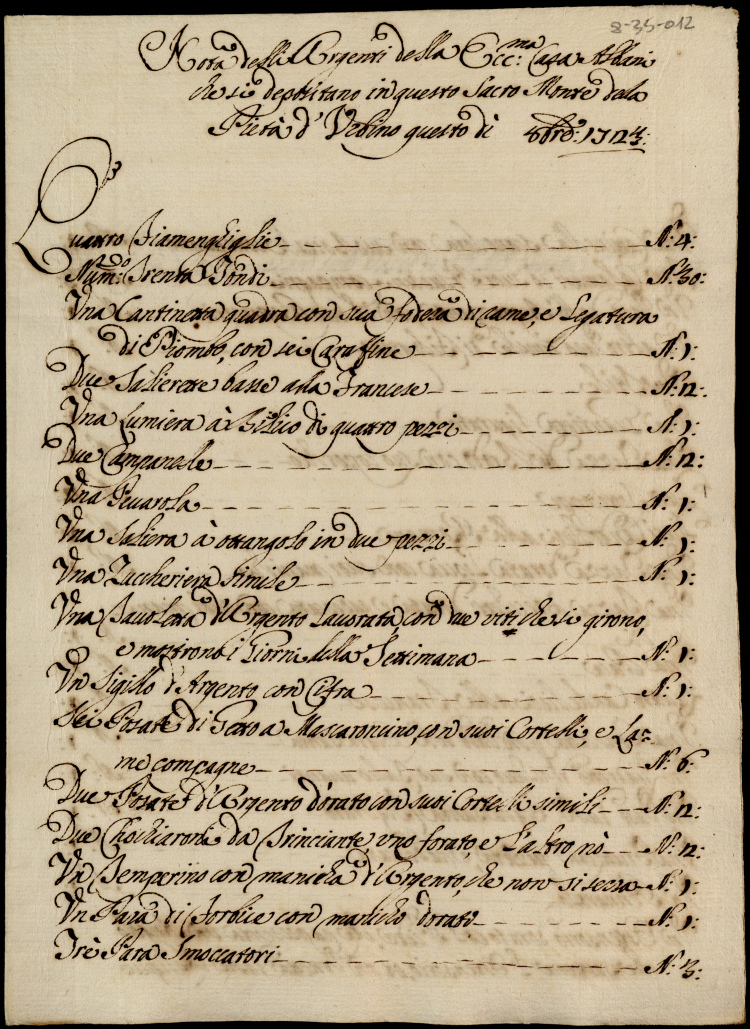 8-35-012
Nota delli Argenti della Ecc:ma Casa Albani
che si depositano in questo Sacro Monte dela
Pietà d'Vrbino questo dì 8bre: 1724:
Quattro Fiamenghiglie N: 4:
Num:o Trenta Tondi N: 30:
Vna Cantinetta quadra con sua fodera di rame, e Legatura
di Piombo, con sei Caraffine N: 1:
Due Salierette basse alla Francese N: 2:
Vna Lumiera à Bilico di quattro pezzi N: 1:
Due Campanelle N: 2:
Vna Pevarola N: 1:
Vna Saliera à ottangolo in due pezzi N: 1:
Vna Zuccheriera simile N: 1:
Vna Tavoletta d'Argento Lavorata, con due viti che si girono,
e mostrono i Giorni della Settimana N: 1:
Vn Sigillo d'Argento con Cifra N: 1:
Sei Posate di Getto a Mascaroncino, con suoi Cortelli, e La=
me compagne N: 6:
Due Posate d'Argento dorato con suoi Cortelli simili N: 2:
Due Chochiaroni da Trinciante, vno forato, e l'altro nò N: 2:
Vn Temperino con manicha d'Argento, che non si serra N: 1:
Vn Para di Forbice con manicho dorato N: 1:
Trè Para Smoccatori N: 3: